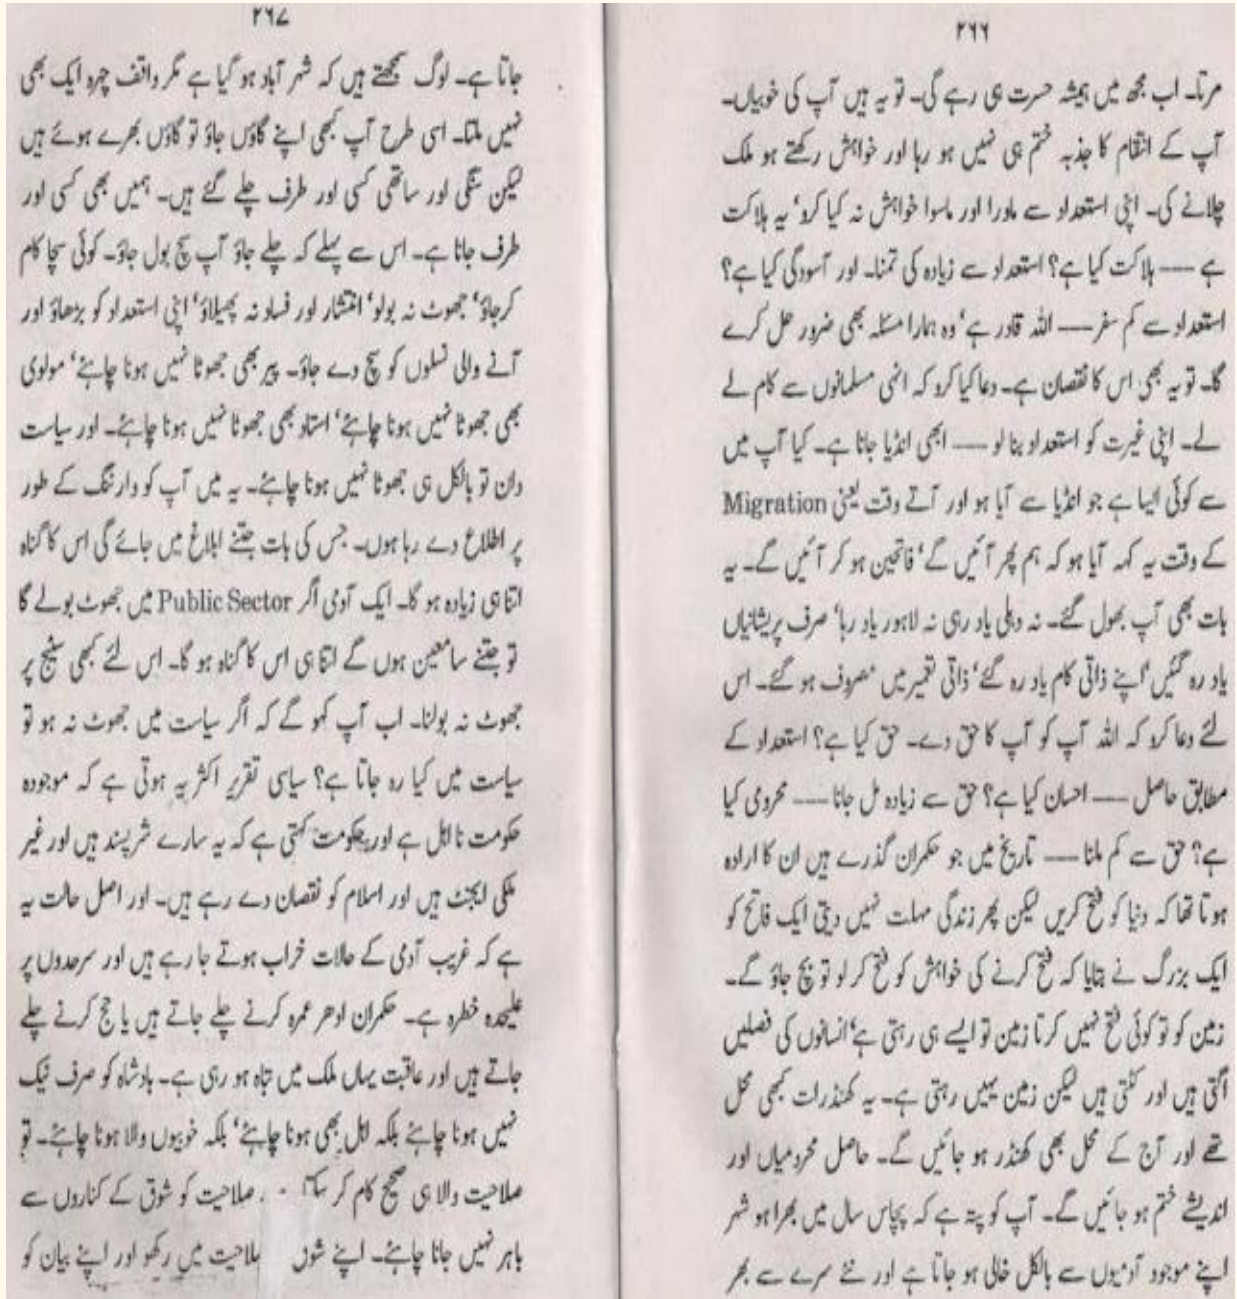 ۲۶۶
مرتا۔ اب مجھ میں ہمیشہ حسرت ہی رہے گی۔ تو یہ ہیں آپ کی خوبیاں۔
آپ کے انتقام کا جذبہ ختم ہی نہیں ہو رہا اور خواہش رکھتے ہو ملک
چلانے کی۔ اپنی استعداد سے ماورا اور ماسوا خواہش نہ کیا کرو‘ یہ ہلاکت
ہے ــــ ہلاکت کیا ہے؟ استعداد سے زیادہ کی تمنا۔ اور آسودگی کیا ہے؟
استعداد سے کم سفر ــــ اللہ قادر ہے‘ وہ ہمارا مسئلہ بھی ضرور حل کرے
گا۔ تو یہ بھی اس کا نقصان ہے۔ دعا کیا کرو کہ انہی مسلمانوں سے کام لے
لے۔ اپنی غیرت کو استعداد بنا لو ــــ ابھی انڈیا جانا ہے۔ کیا آپ میں
سے کوئی ایسا ہے جو انڈیا سے آیا ہو اور آتے وقت یعنی Migration
کے وقت یہ کہہ آیا ہو کہ ہم پھر آئیں گے‘ فاتحین ہو کر آئیں گے۔ یہ
بات بھی آپ بھول گئے۔ نہ دہلی یاد رہی نہ لاہور یاد رہا‘ صرف پریشانیاں
یاد رہ گئیں‘ اپنے ذاتی کام یاد رہ گئے‘ ذاتی تعمیر میں مصروف ہو گئے۔ اس
لئے دعا کرو کہ اللہ آپ کو آپ کا حق دے۔ حق کیا ہے؟ استعداد کے
مطابق حاصل ــــ احسان کیا ہے؟ حق سے زیادہ مل جانا ــــ محرومی کیا
ہے؟ حق سے کم ملنا ــــ تاریخ میں جو حکمران گذرے ہیں ان کا ارادہ
ہوتا تھا کہ دنیا کو فتح کریں لیکن پھر زندگی مہلت نہیں دیتی ایک فاتح کو
ایک بزرگ نے بتایا کہ فتح کرنے کی خواہش کو فتح کر لو تو بچ جاؤ گے۔
زمین کو تو کوئی فتح نہیں کرتا زمین تو ایسے ہی رہتی ہے‘ انسانوں کی فصلیں
اگتی ہیں اور کٹتی ہیں لیکن زمین یہیں رہتی ہے۔ یہ کھنڈرات کبھی محل
تھے اور آج کے محل بھی کھنڈر ہو جائیں گے۔ حاصل محرومیاں اور
اندیشے ختم ہو جائیں گے۔ آپ کو پتہ ہے کہ پچاس سال میں بھرا ہو شہر
اپنے موجود آدمیوں سے بالکل خالی ہو جاتا ہے اور نئے سرے سے بھر
۲۶۷
جاتا ہے۔ لوگ سمجھتے ہیں کہ شہر آباد ہو گیا ہے مگر واقف چہرہ ایک بھی
نہیں ملتا۔ اسی طرح آپ کبھی اپنے گاؤں جاؤ تو گاؤں بھرے ہوئے ہیں
لیکن سنگی اور ساتھی کسی اور طرف چلے گئے ہیں۔ ہمیں بھی کسی اور
طرف جانا ہے۔ اس سے پہلے کہ چلے جاؤ آپ سچ بول جاؤ۔ کوئی سچا کام
کر جاؤ‘ جھوٹ نہ بولو‘ انتشار اور فساد نہ پھیلاؤ‘ اپنی استعداد کو بڑھاؤ اور
آنے والی نسلوں کو سچ دے جاؤ۔ پیر بھی جھوٹا نہیں ہونا چاہئے‘ مولوی
بھی جھوٹا نہیں ہونا چاہئے‘ استاد بھی جھوٹا نہیں ہونا چاہئے۔ اور سیاست
دان تو بالکل ہی جھوٹا نہیں ہونا چاہئے۔ یہ میں آپ کو وارننگ کے طور
پر اطلاع دے رہا ہوں۔ جس کی بات جتنے ابلاغ میں جائے گی اس کا گناہ
اتنا ہی زیادہ ہو گا۔ ایک آدمی اگر Public Sector میں جھوٹ بولے گا
تو جتنے سامعین ہوں گے اتنا ہی اس کا گناہ ہو گا۔ اس لئے کبھی سٹیج پر
جھوٹ نہ بولنا۔ اب آپ کہو گے کہ اگر سیاست میں جھوٹ نہ ہو تو
سیاست میں کیا رہ جاتا ہے؟ سیاسی تقریر اکثر یہ ہوتی ہے کہ موجودہ
حکومت نا اہل ہے اور حکومت کہتی ہے کہ یہ سارے شرپسند ہیں اور غیر
ملکی ایجنٹ ہیں اور اسلام کو نقصان دے رہے ہیں۔ اور اصل حالت یہ
ہے کہ غریب آدمی کے حالات خراب ہوتے جا رہے ہیں اور سرحدوں پر
علیحدہ خطرہ ہے۔ حکمران ادھر عمرہ کرنے چلے جاتے ہیں یا حج کرنے چلے
جاتے ہیں اور عاقبت یہاں ملک میں تباہ ہو رہی ہے۔ بادشاہ کو صرف نیک
نہیں ہونا چاہئے بلکہ اہل بھی ہونا چاہئے‘ بلکہ خوبیوں والا ہونا چاہئے۔ تو
صلاحیت والا ہی صحیح کام کر صلاحیت کو شوق کے کناروں سے
باہر نہیں جانا چاہئے۔ اپنے میں رکھو اور اپنے بیان کو